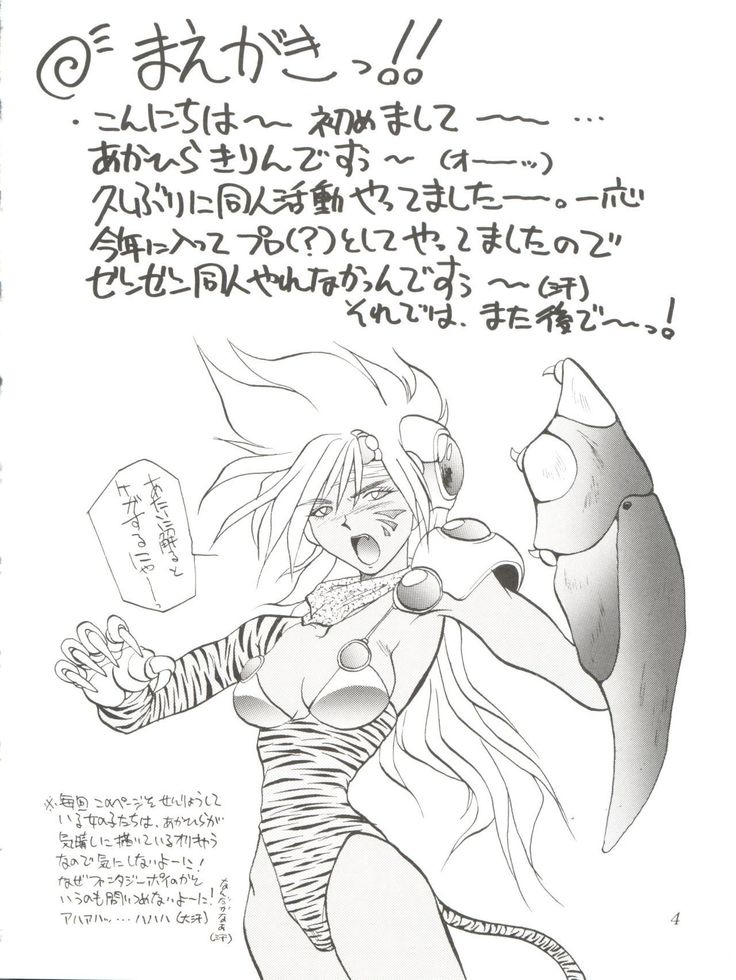 まえがきっ!!
・こんにちは〜 初めまして 〜〜 …
あかひらきりんですぅ〜 (オーーッ)
久しぶりに同人活動やってました〜〜。一応
今年に入ってプロ(?)としてやってましたので
ゼンゼン同人やれなかったんですぅ 〜(汗)
それでは、また後で〜っ!
あたいに触ると
ケガするにゃーっ
※毎回このページをせんりょうして
いる女の子たちは、あかひらが
気晴しに描いているオリキャラ
なので気にしないよーに!
なぜファンタジーポイのかと
いうのも問いつめないよーに!
アハアハッ…ハハハ(大汗)
(汗)
4